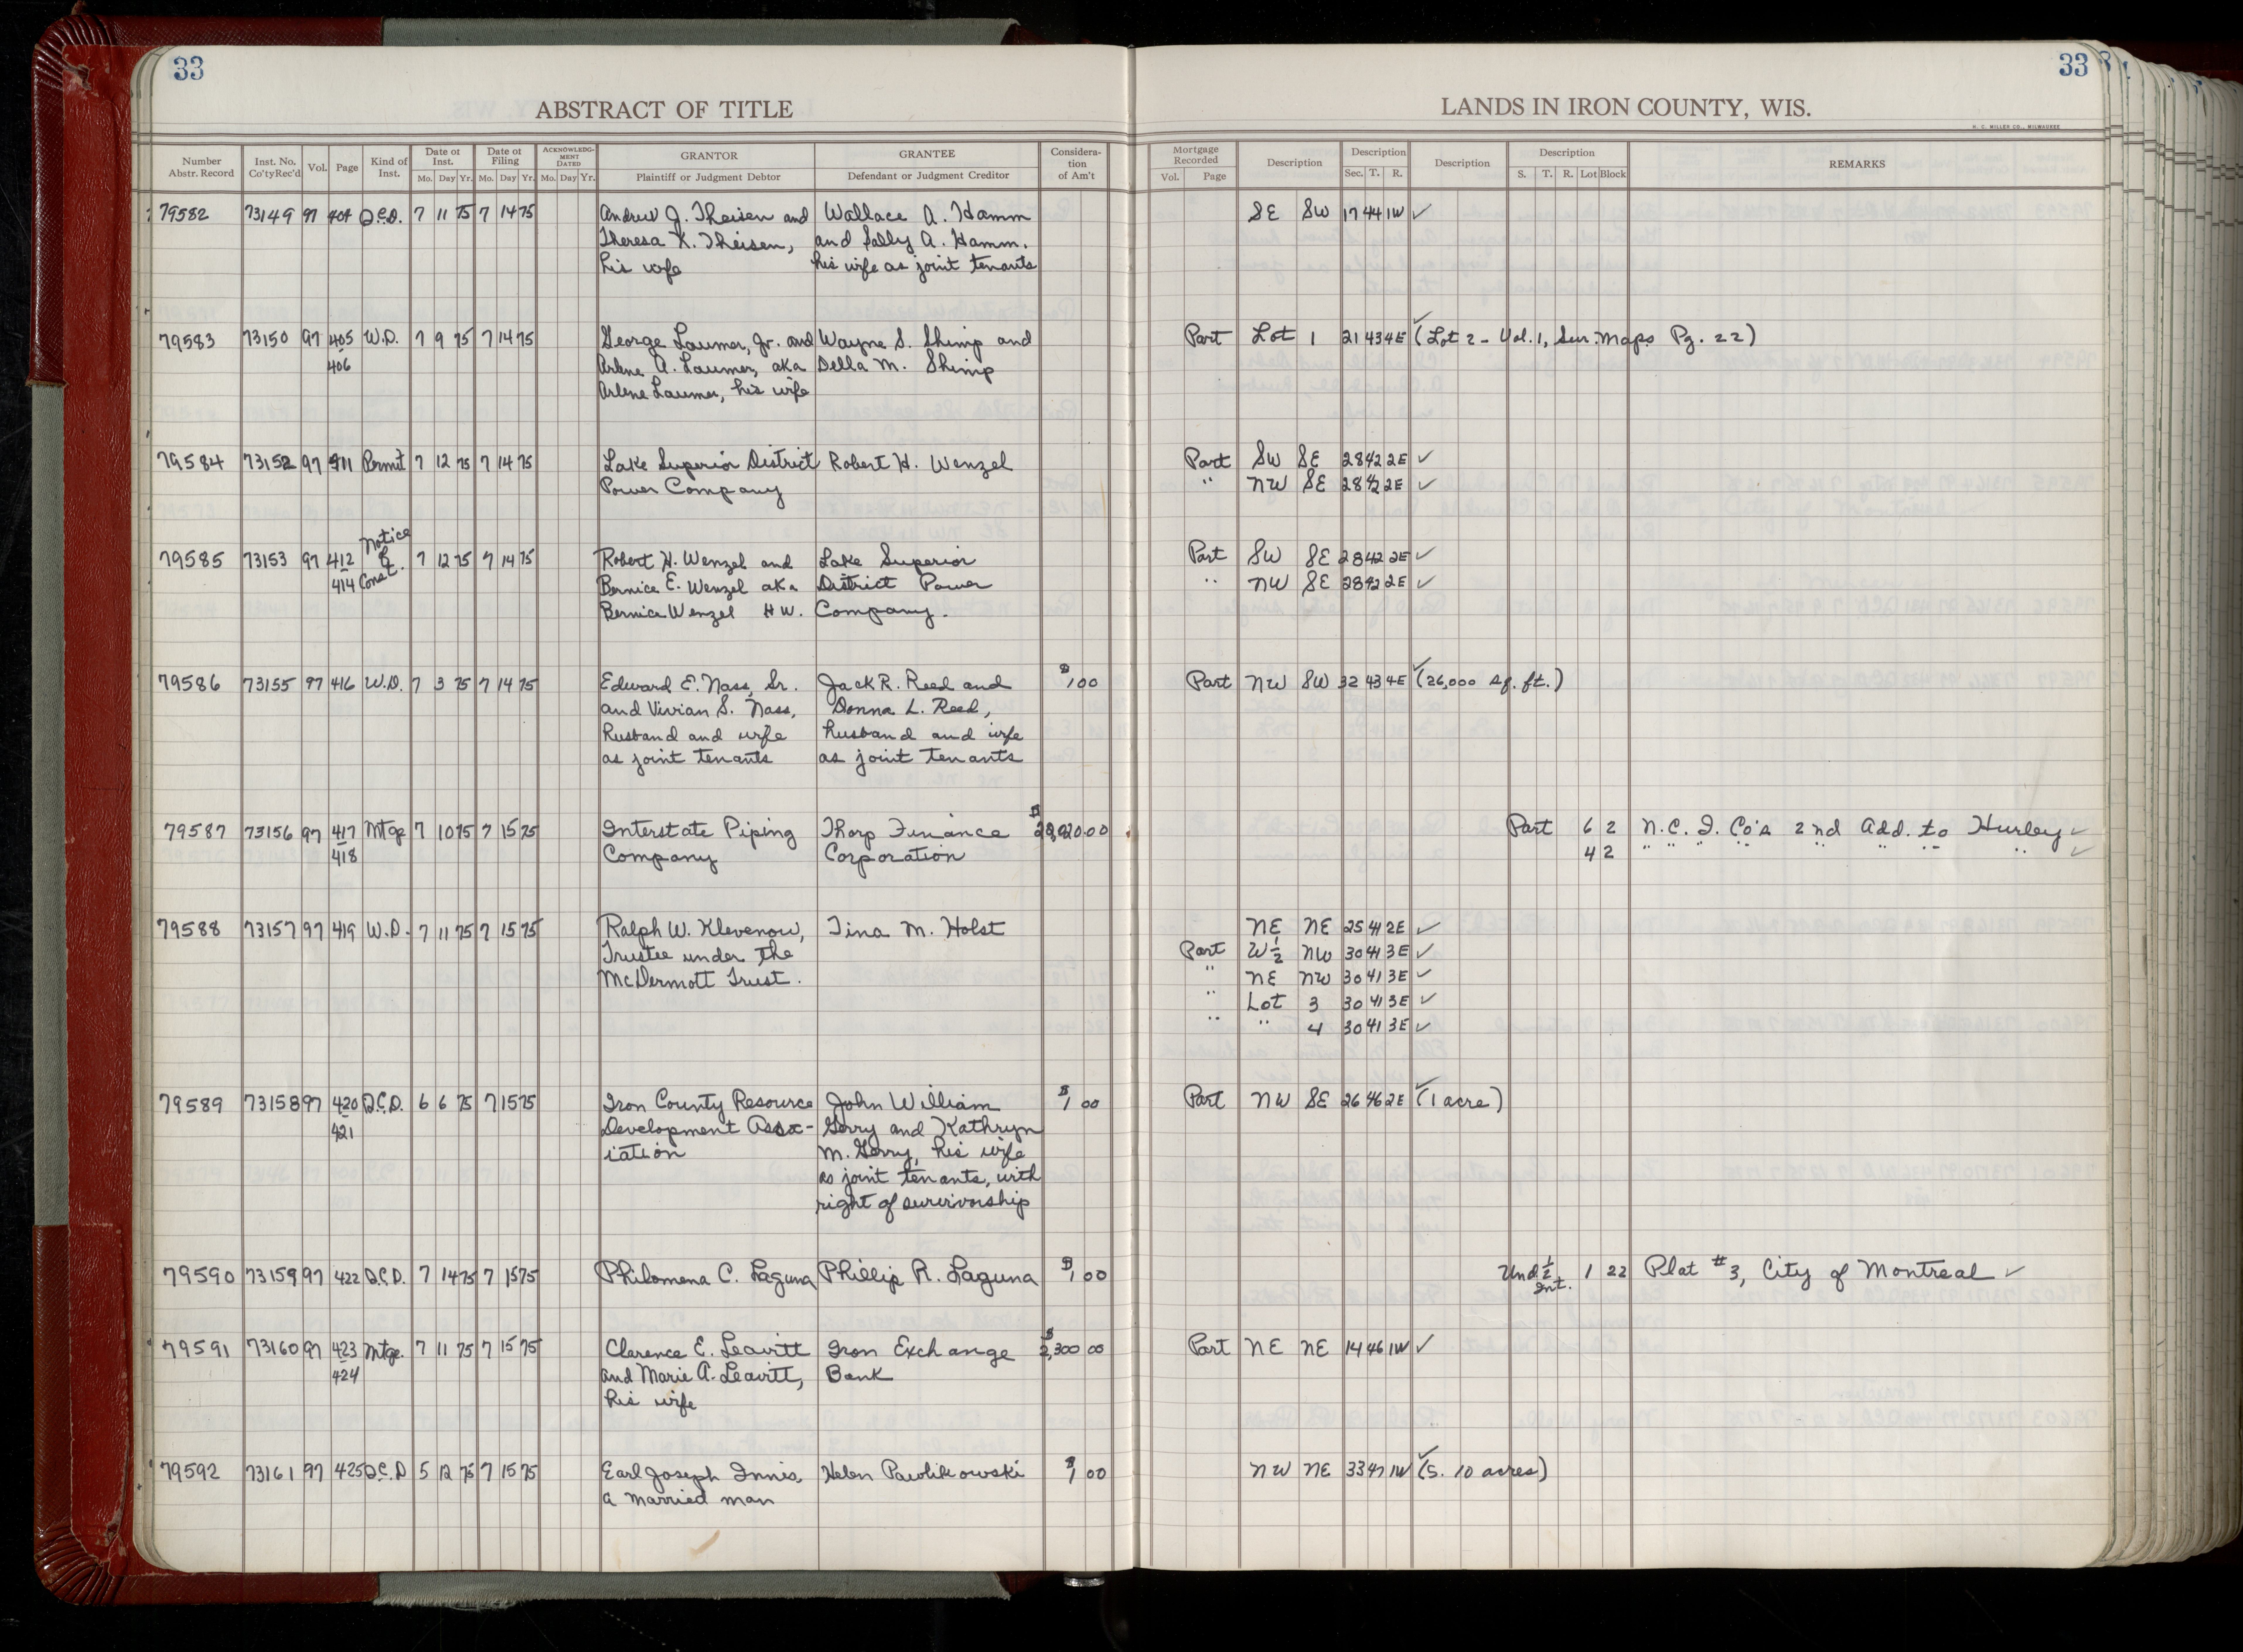 33
33
ABSTRACT OF TITLE
LANDS IN IRON COUNTY, WIS.
H. C. MILLER CO., MILWAUKEE
Number Abstr. Record Inst. No. Co'ty Rec'd Vol. Page Kind of Inst. Date of Inst. Mo. Day Yr. Date of Filing Mo. Day Yr. ACKNOWLEDGMENT DATED Mo. Day Yr. GRANTOR Plaintiff or Judgment Debtor GRANTEE Defendant or Judgment Creditor Consideration of Am't Mortgage Recorded Vol. Page Description Description Sec. T. R. Description Description S. T. R. Lot Block REMARKS
79582 73149 97 404 Q.C.D. 7 11 75 7 14 75 Andrew J. Theisen and Wallace A. Hamm SE SW 17 44 1W ✓
Theresa K. Theisen, and Sally A. Hamm.
his wife his wife as joint tenants
79583 73150 97 405 W.D. 7 9 75 7 14 75 George Laumer, Jr. and Wayne S. Shimp and Part Lot 1 21 43 4E ✓ (Lot 2 - Vol. 1, Sur. Maps Pg. 22)
406 Arlene A. Laumer, aka Della M. Shimp
Arlene Laumer, his wife
79584 73152 97 411 Permit 7 12 75 7 14 75 Lake Superior District Robert H. Wenzel Part SW SE 28 42 2E ✓
Power Company " NW SE 28 42 2E ✓
79585 73153 97 412 Notice of Const. 7 12 75 7 14 75 Robert H. Wenzel and Lake Superior Part SW SE 28 42 2E ✓
414 Bernice E. Wenzel aka District Power " NW SE 28 42 2E ✓
Bernice Wenzel H W. Company.
79586 73155 97 416 W.D. 7 3 75 7 14 75 Edward E. Nass, Sr. Jack R. Reed and $1 00 Part NW SW 32 43 4E ✓ (26,000 sq. ft.)
and Vivian S. Nass, Donna L. Reed,
husband and wife husband and wife
as joint tenants as joint tenants
79587 73156 97 417 Mtge 7 10 75 7 15 75 Interstate Piping Thorp Finance Part 6 2 N.C. I. Co's 2nd Add. to Hurley ✓
418 Company Corporation 4 2 " " " " " " " " ✓
79588 73157 97 419 W.D. 7 11 75 7 15 75 Ralph W. Klevenow, Tina M. Holst NE NE 25 41 2E ✓
Trustee under the Part W½ NW 30 41 3E ✓
McDermott Trust. " NE NW 30 41 3E ✓
" Lot 3 30 41 3E ✓
" " 4 30 41 3E ✓
79589 73158 97 420 Q.C.D. 6 6 75 7 15 75 Iron County Resource John William $1 00 Part NW SE 26 46 2E ✓ (1 acre)
421 Development Assoc- Gerry and Kathryn
iation M. Gerry, his wife
as joint tenants, with
right of survivorship
79590 73159 97 422 Q.C.D. 7 14 75 7 15 75 Philomena C. Laguna Phillip R. Laguna $1 00 Und. ½ Int. 1 22 Plat #3, City of Montreal ✓
79591 73160 97 423 Mtge. 7 11 75 7 15 75 Clarence E. Leavitt Iron Exchange $2,300 00 Part NE NE 14 46 1W ✓
424 and Marie A. Leavitt, Bank
his wife
79592 73161 97 425 Q.C.D 5 12 75 7 15 75 Earl Joseph Innis, Helen Pawlikowski $1 00 NW NE 33 47 1W ✓ (S. 10 acres)
a married man